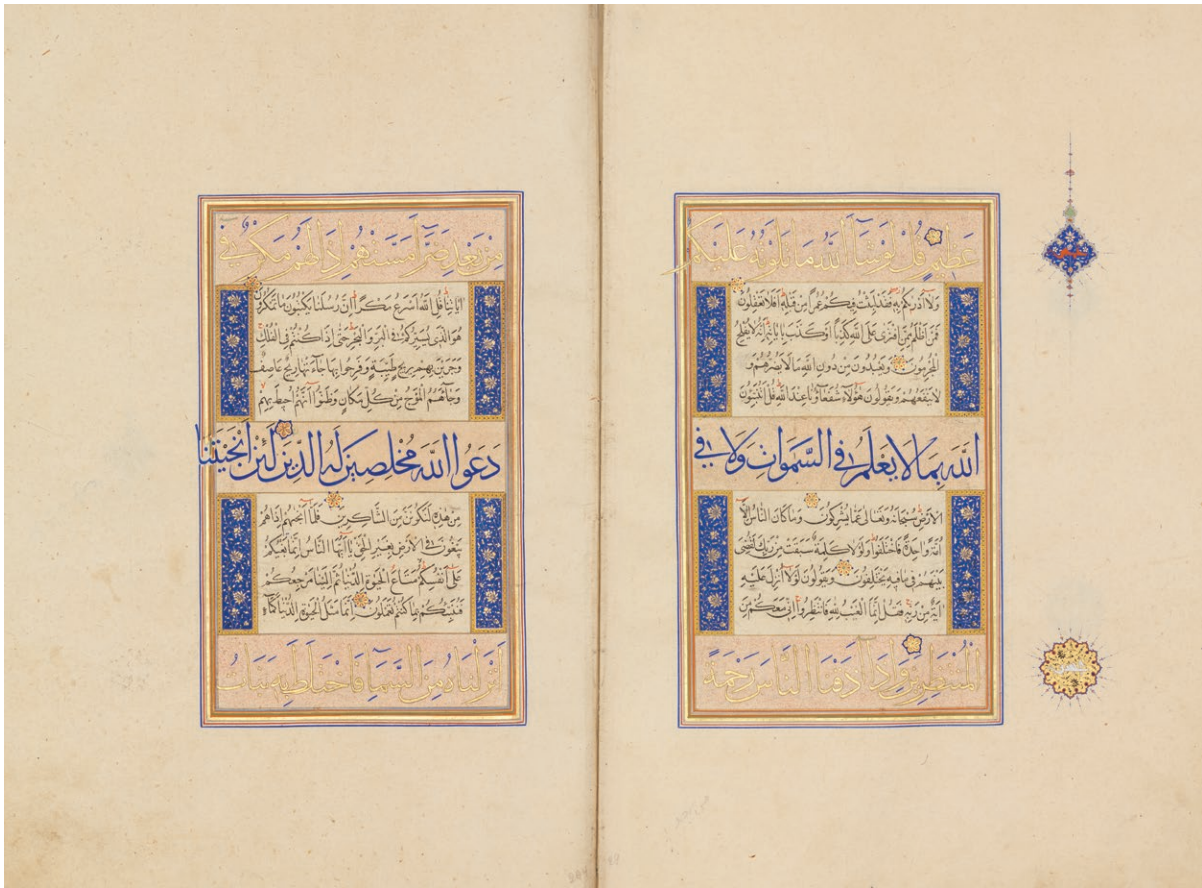 عَظِيمٍ قُلْ لَوْ شَآءَ اللَّهُ مَا تَلَوْتُهُ عَلَيْكُمْ
وَلَا أَدْرَيكُمْ بِهِ فَقَدْ لَبِثْتُ فِيكُمْ عُمُرًا مِنْ قَبْلِهِ أَفَلَا تَعْقِلُونَ
فَمَنْ أَظْلَمُ مِمَّنِ افْتَرَى عَلَى اللَّهِ كَذِبًا أَوْ كَذَّبَ بِآيَاتِهِ إِنَّهُ لَا يُفْلِحُ
الْمُجْرِمُونَ وَيَعْبُدُونَ مِنْ دُونِ اللَّهِ مَا لَا يَضُرُّهُمْ وَ
لَا يَنْفَعُهُمْ وَيَقُولُونَ هَؤُلَآءِ شُفَعَاؤُنَا عِنْدَ اللَّهِ قُلْ أَتُنَبِّئُونَ
اللَّهَ بِمَا لَا يَعْلَمُ فِي السَّمَوَاتِ وَلَا فِي
الْأَرْضِ سُبْحَانَهُ وَتَعَالَى عَمَّا يُشْرِكُونَ وَمَا كَانَ النَّاسُ إِلَّا
أُمَّةً وَاحِدَةً فَاخْتَلَفُوا وَلَوْلَا كَلِمَةٌ سَبَقَتْ مِنْ رَبِّكَ لَقُضِيَ
بَيْنَهُمْ فِيمَا فِيهِ يَخْتَلِفُونَ وَيَقُولُونَ لَوْلَا أُنْزِلَ عَلَيْهِ
آيَةٌ مِنْ رَبِّهِ فَقُلْ إِنَّمَا الْغَيْبُ لِلَّهِ فَانْتَظِرُوا إِنِّي مَعَكُمْ مِنَ
الْمُنْتَظِرِينَ وَإِذَا أَذَقْنَا النَّاسَ رَحْمَةً
مِنْ بَعْدِ ضَرَّآءَ مَسَّتْهُمْ إِذَا لَهُمْ مَكْرٌ فِي
آيَاتِنَا قُلِ اللَّهُ أَسْرَعُ مَكْرًا إِنَّ رُسُلَنَا يَكْتُبُونَ مَا تَمْكُرُونَ
هُوَ الَّذِي يُسَيِّرُكُمْ فِي الْبَرِّ وَالْبَحْرِ حَتَّى إِذَا كُنْتُمْ فِي الْفُلْكِ
وَجَرَيْنَ بِهِمْ بِرِيحٍ طَيِّبَةٍ وَفَرِحُوا بِهَا جَآءَتْهَا رِيحٌ عَاصِفٌ
وَجَآءَهُمُ الْمَوْجُ مِنْ كُلِّ مَكَانٍ وَظَنُّوا أَنَّهُمْ أُحِيطَ بِهِمْ
دَعَوُا اللَّهَ مُخْلِصِينَ لَهُ الدِّينَ لَئِنْ أَنْجَيْتَنَا
مِنْ هَذِهِ لَنَكُونَنَّ مِنَ الشَّاكِرِينَ فَلَمَّا أَنْجَيهُمْ إِذَا هُمْ
يَبْغُونَ فِي الْأَرْضِ بِغَيْرِ الْحَقِّ يَا أَيُّهَا النَّاسُ إِنَّمَا بَغْيُكُمْ
عَلَى أَنْفُسِكُمْ مَتَاعَ الْحَيَوةِ الدُّنْيَا ثُمَّ إِلَيْنَا مَرْجِعُكُمْ
فَنُنَبِّئُكُمْ بِمَا كُنْتُمْ تَعْمَلُونَ إِنَّمَا مَثَلُ الْحَيَوةِ الدُّنْيَا كَمَآءٍ
أَنْزَلْنَاهُ مِنَ السَّمَآءِ فَاخْتَلَطَ بِهِ نَبَاتُ